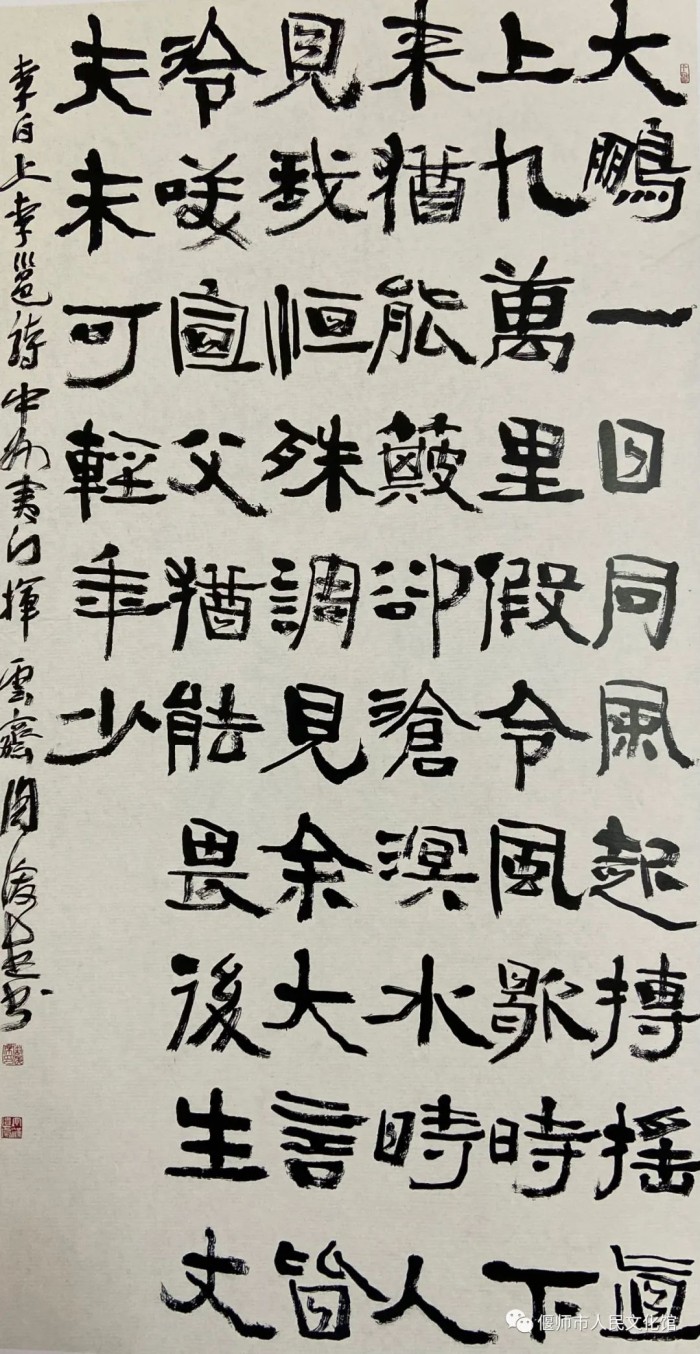 大鵬一日同風起搏搖直
上九萬里假令風歇時下
来猶能簸卻滄溟水時人
見我恒殊調見余大言皆
冷咲宣父猶能畏後生丈
夫未可輕年少
李白上李邕詩中州夷門揮雲齋周俊杰書
偃师市人民文化馆